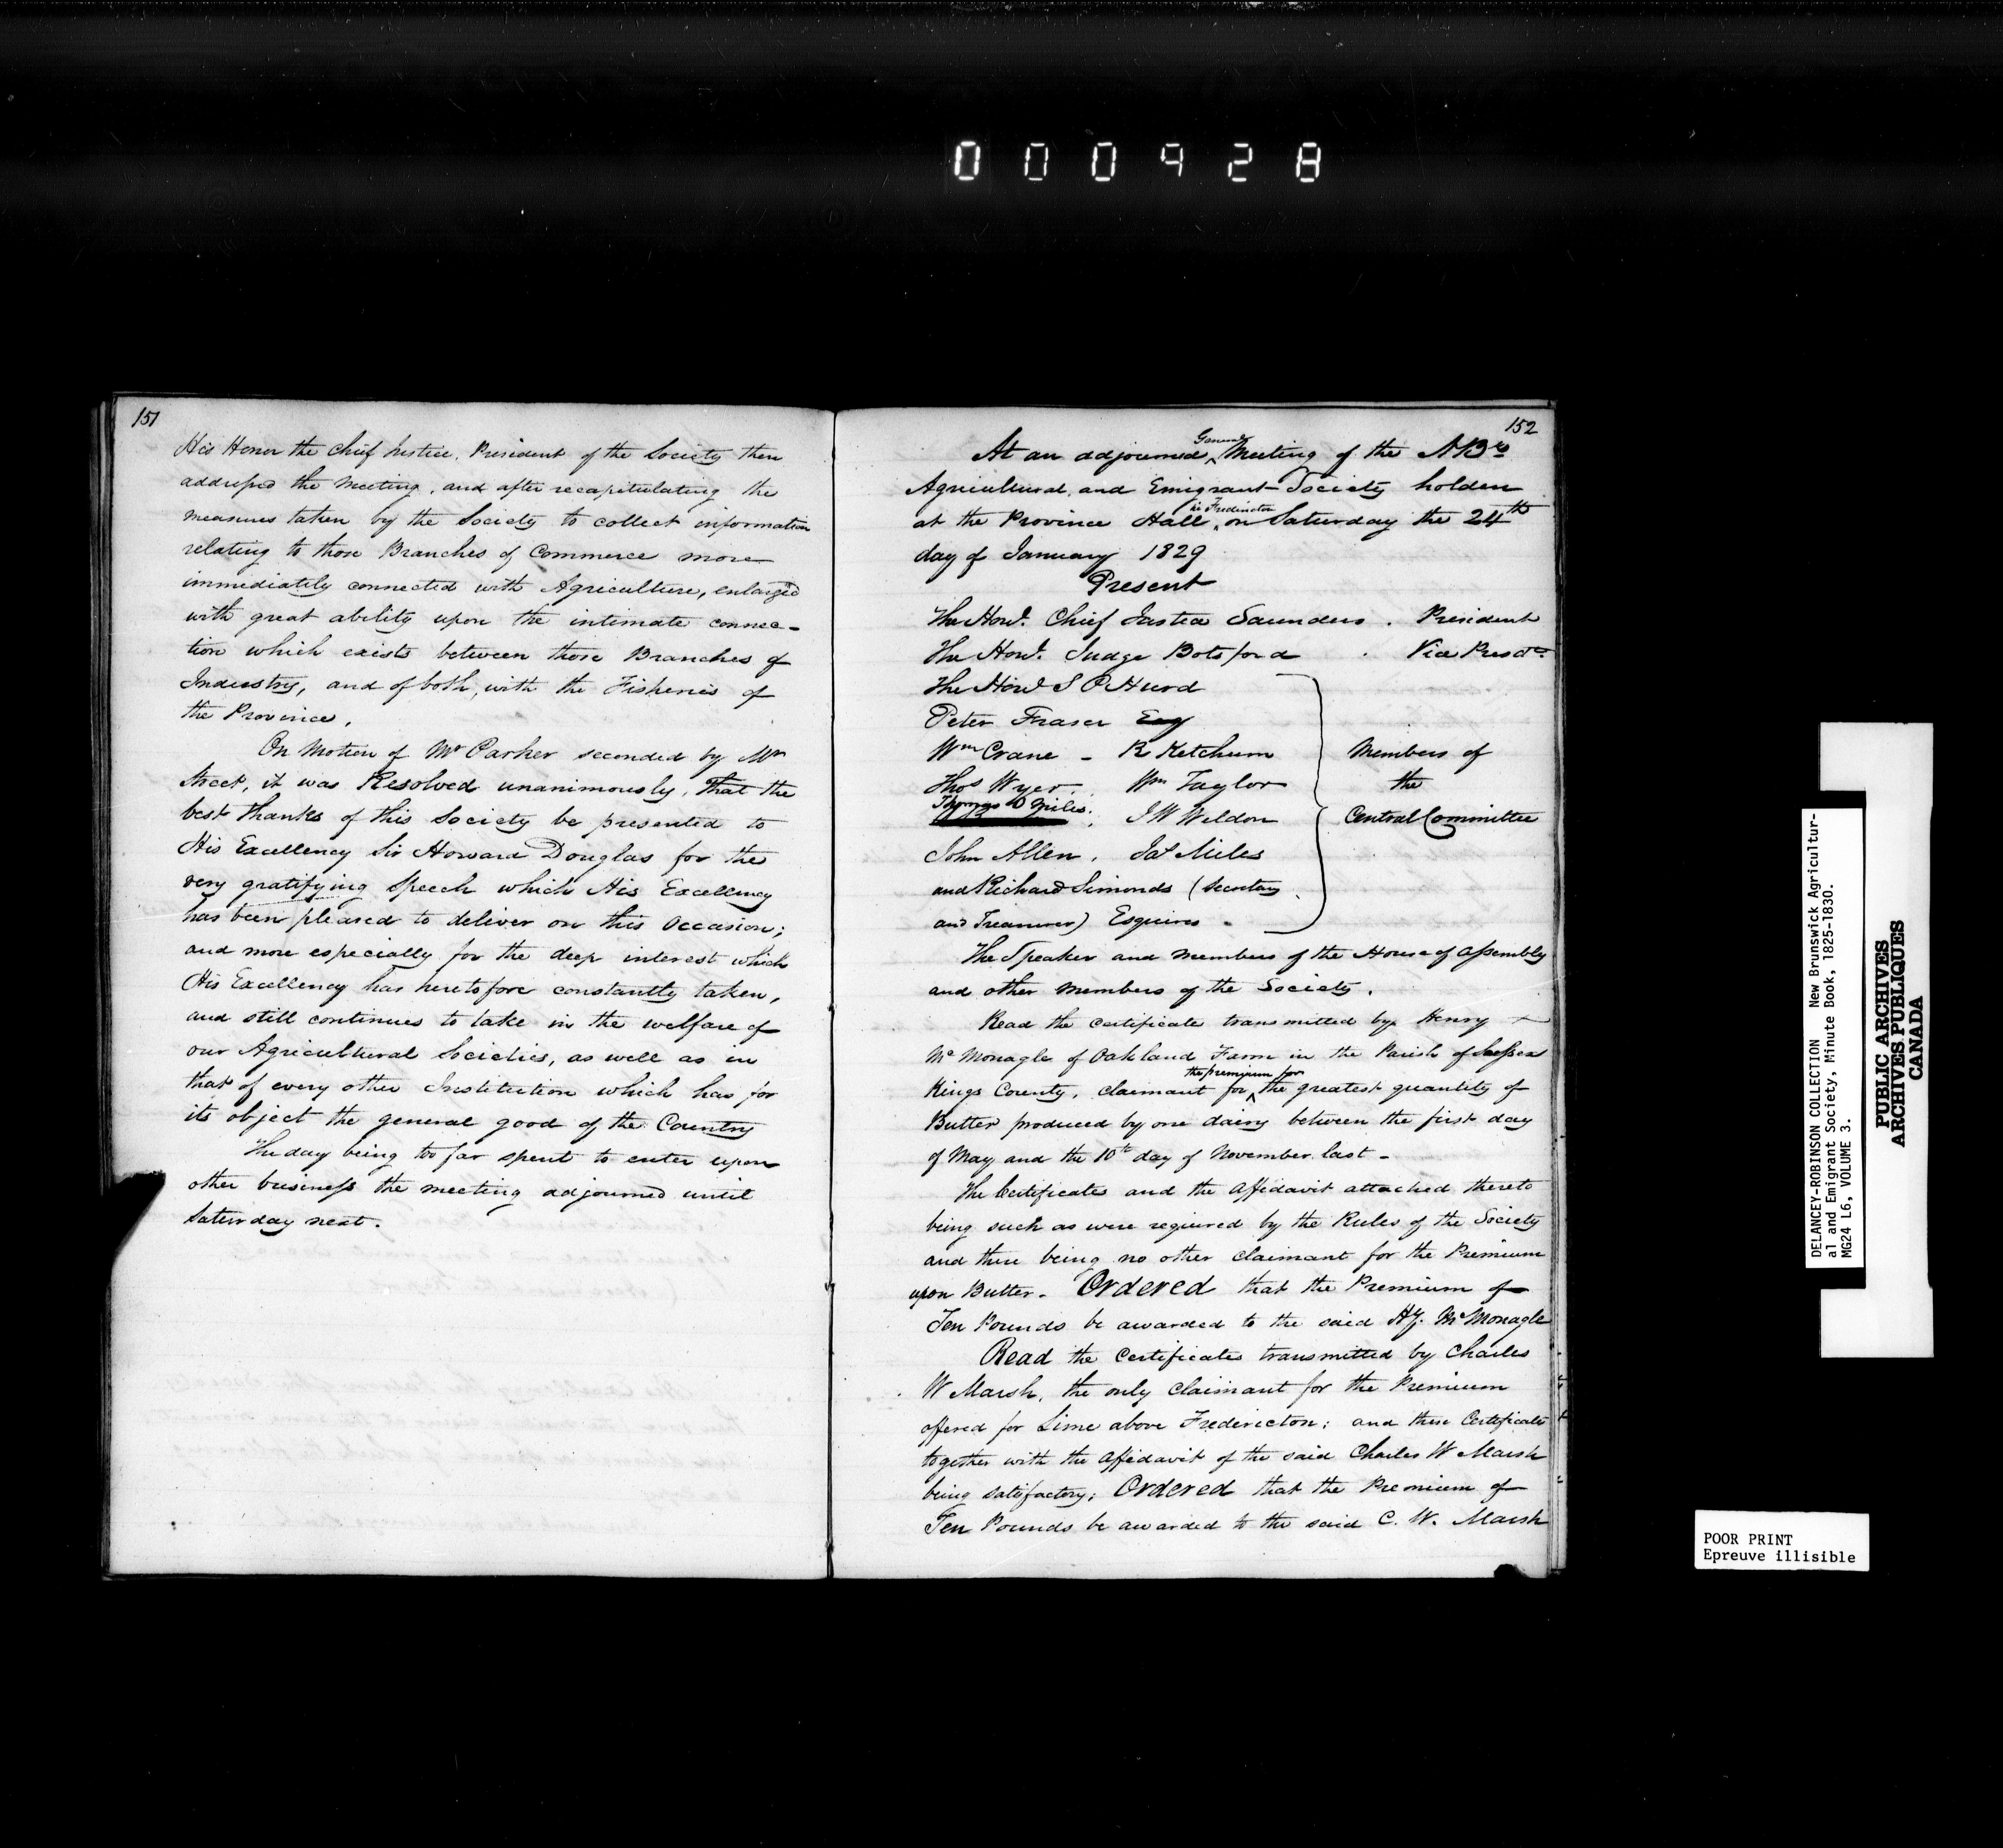 000928
151
His Honor the Chief Justice, President of the Society then
addressed the Meeting, and after recapitulating the
measures taken by the Society to collect information
relating to those Branches of Commerce more
immediately connected with Agriculture, enlarged
with great ability upon the intimate connec-
tion which exists between those Branches of
Industry, and of both, with the Fisheries of
the Province.
On Motion of Mr Parker seconded by Mr
Street, it was Resolved unanimously, That the
best thanks of this Society be presented to
His Excellency Sir Howard Douglas for the
very gratifying Speech which His Excellency
has been pleased to deliver on this Occasion;
and more especially for the deep interest which
His Excellency has heretofore constantly taken,
and still continues to take in the welfare of
our Agricultural Societies, as well as in
that of every other Institution which has for
its object the general good of the Country
The day being too far spent to enter upon
other business the meeting adjourned until
Saturday next.
152
At an adjourned General Meeting of the N Bk
Agricultural, and Emigrant Society holden
at the Province Hall, in Fredericton on Saturday the 24th
day of January 1829
Present
The Honl. Chief Justice Saunders . President
The Honl. Judge Botsford . Vice Presdt
The Honl S P Hurd
Peter Fraser Esq
Wm Crane - R Ketchum
Thos Wyer. Wm Taylor
Thomas O Miles. J W Weldon
John Allen, Jas Miles
and Richard Simonds (Secretary
and Treasurer) Esquires -
Members of
the
Central Committee
The Speaker and Members of the House of Assembly
and other Members of the Society.
Read the Certificate transmitted by Henry
McMonagle of Oakland Farm in the Parish of Sussex
Kings County, claimant for the premium for the greatest quantity of
Butter produced by one dairy between the first day
of May and the 10th day of November last -
The Certificates and the Affidavit attached thereto
being such as were required by the Rules of the Society
and there being no other Claimant for the Premium
upon Butter. Ordered that the Premium of
Ten Pounds be awarded to the said Hy. McMonagle
Read the Certificates transmitted by Charles
W Marsh, the only Claimant for the Premium
offered for Lime above Fredericton; and these Certificates
together with the Affidavit of the said Charles W Marsh
being satisfactory; Ordered that the Premium of
Ten Pounds be awarded to the said C. W. Marsh
DELANCEY-ROBINSON COLLECTION New Brunswick Agricultur-
al and Emigrant Society, Minute Book, 1825-1830.
MG24 L6, VOLUME 3.
PUBLIC ARCHIVES
ARCHIVES PUBLIQUES
CANADA
POOR PRINT
Epreuve illisible